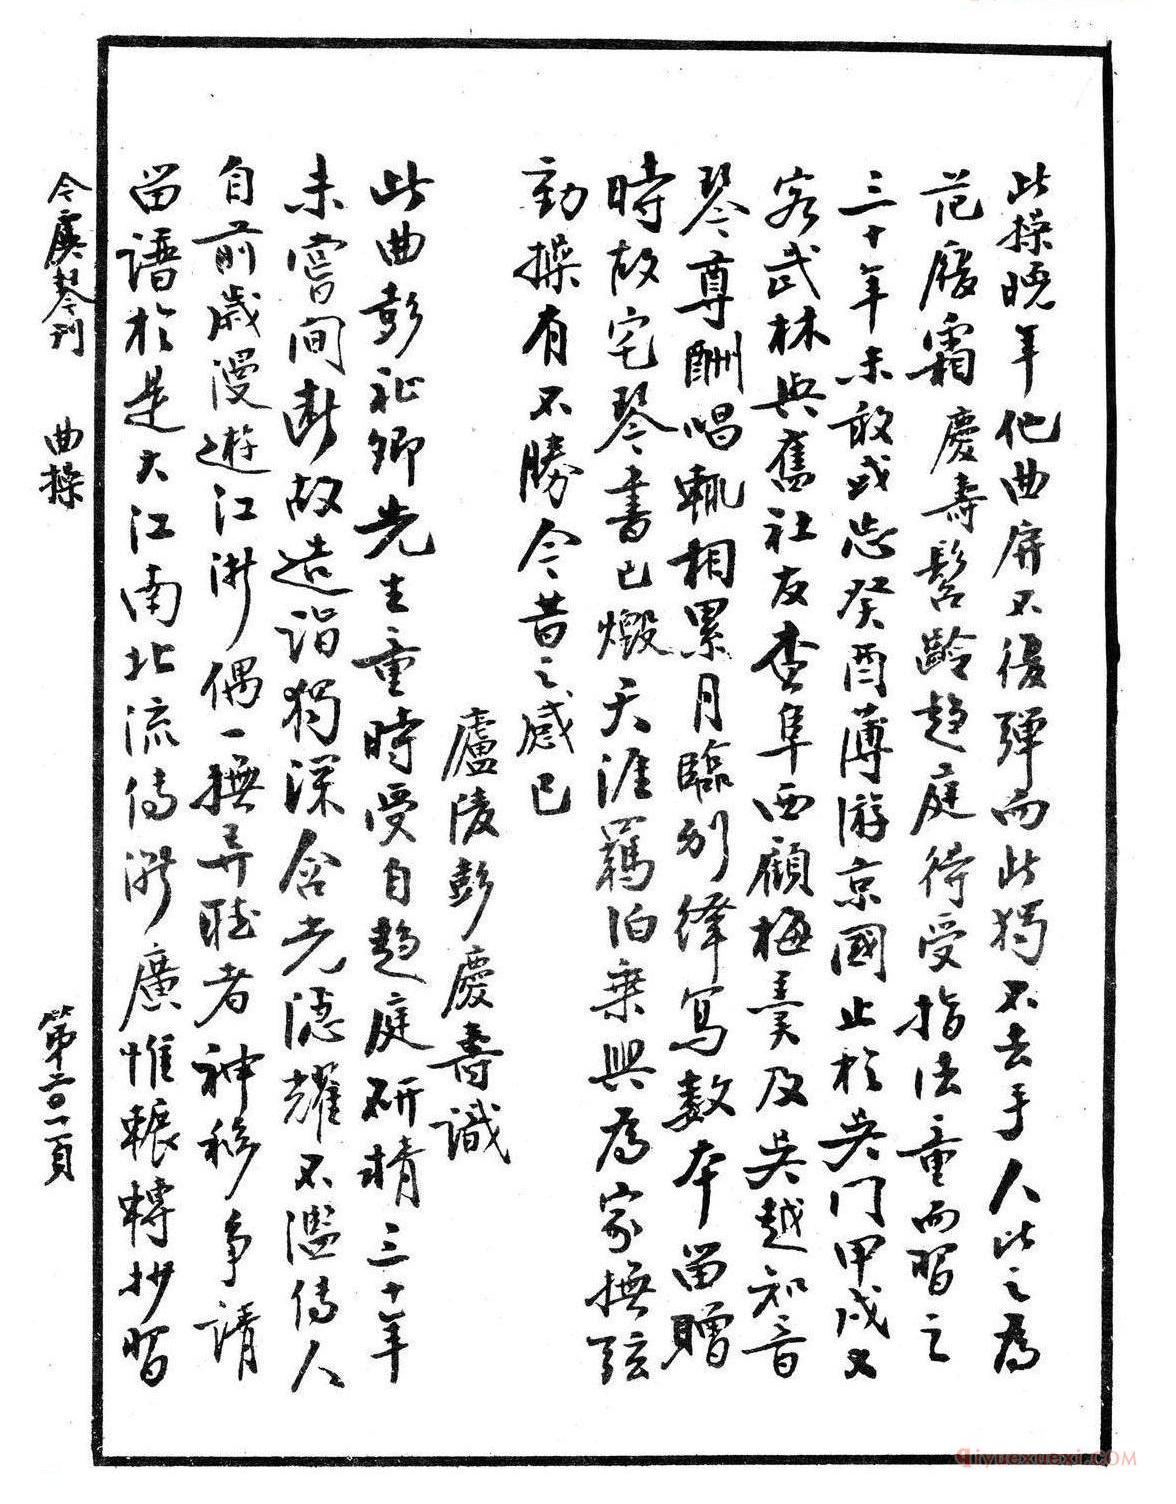 此操晚年他曲屏不復彈而此獨不去手人此之為
范履霜慶壽髫齡趨庭待受指法童而習之
三十年未敢或忘癸酉薄游京國止於吳門甲戌又
客武林與舊社友查阜西顧梅羹及吳越知音
琴尊酬唱輒相累月臨別繹寫數本留贈
時故宅琴書已燬天涯羈泊乘興為家撫弦
動操有不勝今昔之感已
廬陵彭慶壽識
此曲彭祉卿先生童時受自趨庭研精三十年
未嘗間斷故造詣獨深含光隱耀不濫傳人
自前歲漫遊江浙偶一撫弄聽者神移爭請
留譜於是大江南北流傳漸廣惟輾轉抄習
今虞琴刊 曲操 第二〇一頁
qiyuexuexi.COM